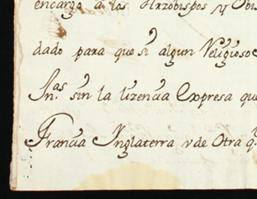 encargo a los Arzobispos y Obis
dado para que si algun Religioso
Yn.as sin la lizencia Expresa que
Francia Inglaterra u de Otra q